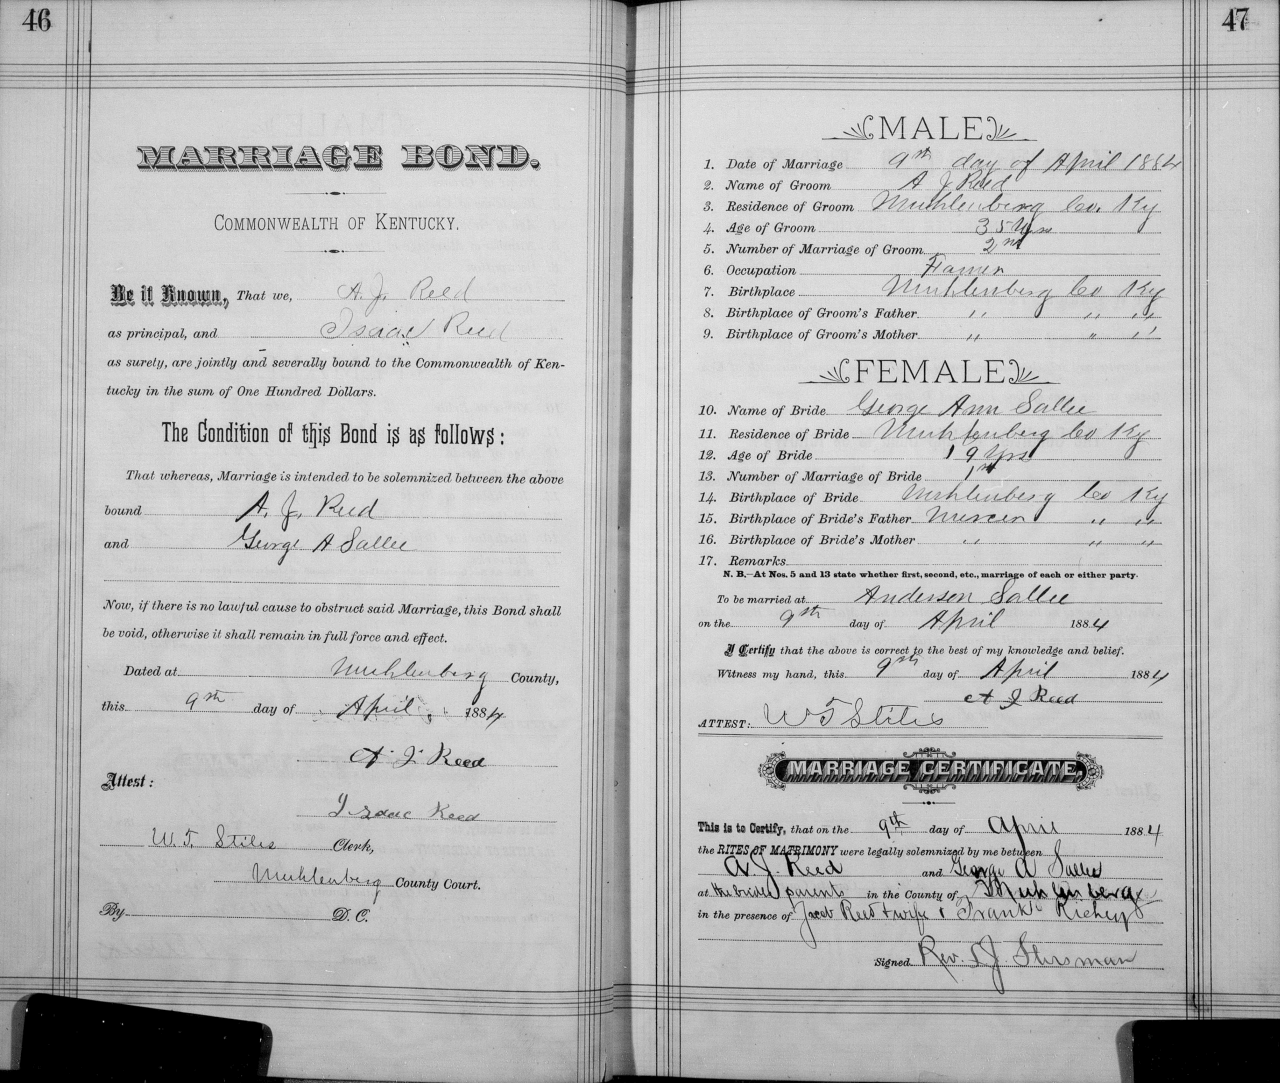 46
MARRIAGE BOND.
COMMONWEALTH OF KENTUCKY.
Be it Known, That we, A. J. Reed
as principal, and Isaac Reed
as surely, are jointly and severally bound to the Commonwealth of Ken-
tucky in the sum of One Hundred Dollars.
The Condition of this Bond is as follows:
That whereas, Marriage is intended to be solemnized between the above
bound A. J. Reed
and George A Sallee
Now, if there is no lawful cause to obstruct said Marriage, this Bond shall
be void, otherwise it shall remain in full force and effect.
Dated at Muhlenberg County,
this 9th day of April 1884
A J Reed
Attest:
Isaac Reed
W. T. Stiles Clerk,
Muhlenberg County Court.
By D. C.
47
MALE
1. Date of Marriage 9th day of April 1884
2. Name of Groom A J Reed
3. Residence of Groom Muhlenberg Co. Ky
4. Age of Groom 35 Yrs
5. Number of Marriage of Groom 2nd
6. Occupation Famer
7. Birthplace Muhlenberg Co Ky
8. Birthplace of Groom's Father " " "
9. Birthplace of Groom's Mother " " "
FEMALE
10. Name of Bride George Ann Sallee
11. Residence of Bride Muhlenberg Co Ky
12. Age of Bride 19 Yrs
13. Number of Marriage of Bride 1st
14. Birthplace of Bride Muhlenberg Co Ky
15. Birthplace of Bride's Father Mercer " "
16. Birthplace of Bride's Mother " " "
17. Remarks
N. B.—At Nos. 5 and 13 state whether first, second, etc., marriage of each or either party.
To be married at Anderson Sallee
on the 9th day of April 1884
I Certify that the above is correct to the best of my knowledge and belief.
Witness my hand, this 9th day of April 1884
A J Reed
ATTEST: W T Stiles
MARRIAGE CERTIFICATE,
This is to Certify, that on the 9th day of April 1884
the RITES OF MATRIMONY were legally solemnized by me between
A. J. Reed and George A Sallee
at the brides parents in the County of Muhlenberg
in the presence of Jacob Reed & wife & Frank Richey
Signed Rev. J.